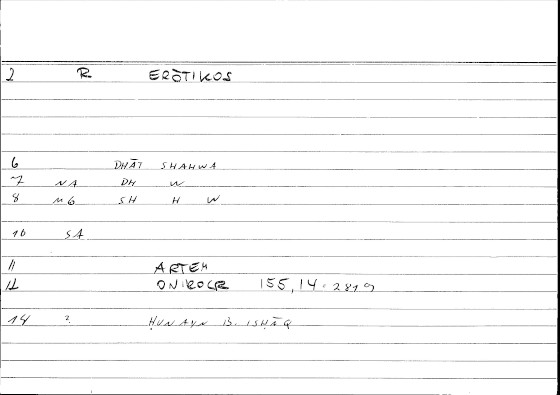 2 R ERŌTIKOS
6 DHĀT SHAHWA
7 NA DH W
8 MG SH H W
10 SA
11 ARTEM
12 ONIROCR 155,14
14 ? ḤUNAYN B. ISḤĀQ